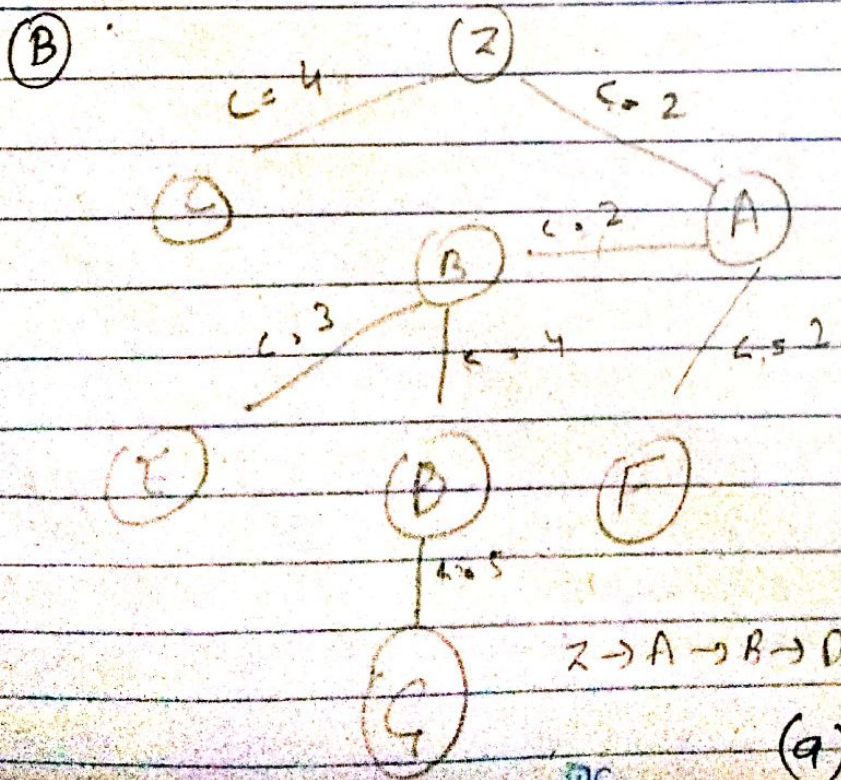 B Z
C= 4 C= 2
C A
B C= 2
C= 3 C= 4 C= 2
E D F
5
G
Z → A → B → D
(a)